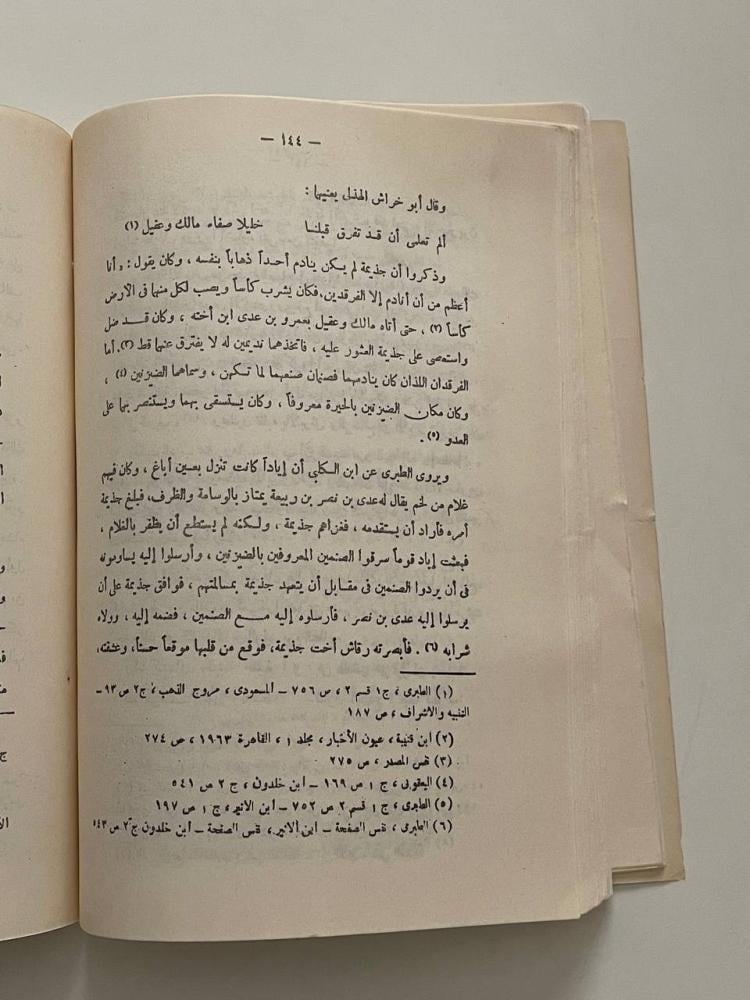 — ١٤٤ —
وقال أبو خراش الهذلى يعنيهما :
ألم تعلمى أن قد تفرق قبلنا خليلا صفاء مالك وعقيل (١)
وذكروا أن جذيمة لم يكن ينادم أحداً ذهاباً بنفسه ، وكان يقول : « أنا
أعظم من أن أنادم إلا الفرقدين ، فكان يشرب كأساً ويصب لكل منهما فى الأرض
كأساً (٢) ، حتى أتاه مالك وعقيل بعمرو بن عدى ابن أخته ، وكان قد ضل
واستعصى على جذيمة العثور عليه ، فاتخذهما نديمين له لا يفترق عنهما قط (٣). أما
الفرقدان اللذان كان ينادمهما فصنمان صنعهما لما تكهن ، وسماهما الضيزنين (٤) ،
وكان مكان الضيزنين بالحيرة معروفاً ، وكان يستسقى بهما ويستنصر بهما على
العدو (٥) .
ويروى الطبرى عن ابن الكلبى أن إياداً كانت تنزل بعين أباغ ، وكان فيهم
غلام من لخم يقال له عدى بن نصر بن ربيعة يمتاز بالوسامة والظرف، فبلغ جذيمة
أمره فأراد أن يستقدمه ، فغزاهم جذيمة ، ولكنه لم يستطع أن يظفر بالغلام ،
فبعثت إياد قوماً سرقوا الصنمين المعروفين بالضيزنين ، وأرسلوا إليه يساومونه
فى أن يردوا الصنمين فى مقابل أن يتعهد جذيمة بمسالمتهم ، فوافق جذيمة على أن
يرسلوا إليه عدى بن نصر ، فأرسلوه إليه مع الصنمين ، فضمه إليه ، وولاه
شرابه (٦) . فأبصرته رقاش أخت جذيمة، فوقع من قلبها موقعاً حسناً، وعشقته،
(١) الطبرى ، ج ١ قسم ٢ ، ص ٧٥٦ – المسعودى ، مروج الذهب ، ج ٢ ص ٩٣ –
التنبيه والاشراف ، ص ١٨٧
(٢) ابن قتيبة ، عيون الأخبار ، مجلد ١ ، القاهرة ١٩٦٣ ، ص ٢٧٤
(٣) نفس المصدر ، ص ٢٧٥
(٤) اليعقوبى ، ج ١ ص ١٦٩ – ابن خلدون ، ج ٢ ص ٥٤١
(٥) الطبرى ، ج ١ قسم ٢ ص ٧٥٢ – ابن الاثير ، ج ١ ص ١٩٧
(٦) الطبرى ، نفس الصفحة – ابن الاثير، نفس الصفحة – ابن خلدون ج ٢ ص ٥٤٣